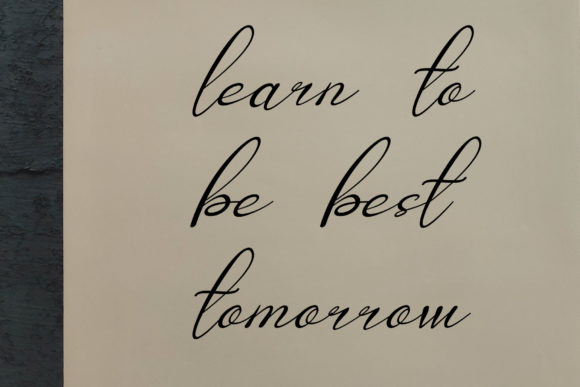 learn to
be best
tomorrow